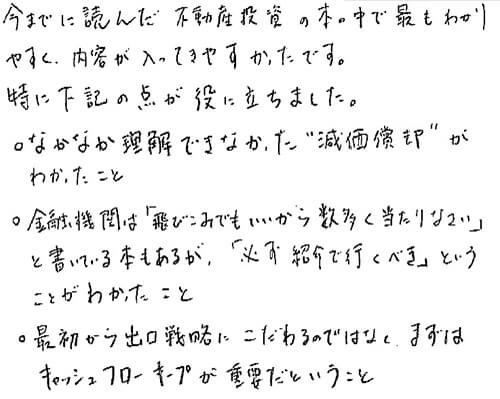 今までに読んだ不動産投資の本の中で最もわかり
やすく、内容が入ってきやすかったです。
特に下記の点が役に立ちました。
○なかなか理解できなかった"減価償却"が
わかったこと
○金融機関は「飛びこみでもいいから数多く当たりなさい」
と書いている本もあるが、「必ず紹介で行くべき」という
ことがわかったこと
○最初から出口戦略にこだわるのではなく、まずは
キャッシュフローキープが重要だということ